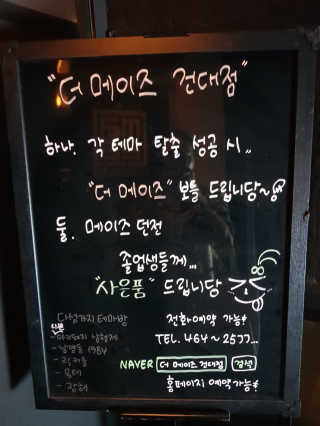 "더 메이즈 건대점"
하나. 각 테마 탈출 성공 시..
"더 메이즈" 보틀 드립니당~
둘. 메이즈 던전
졸업생들께...
"사은품" 드립니당
다섯가지 테마방
전화예약 가능!
TEL. 464-2577...
NAVER 더 메이즈 건대점 검색
홈페이지 예약가능!